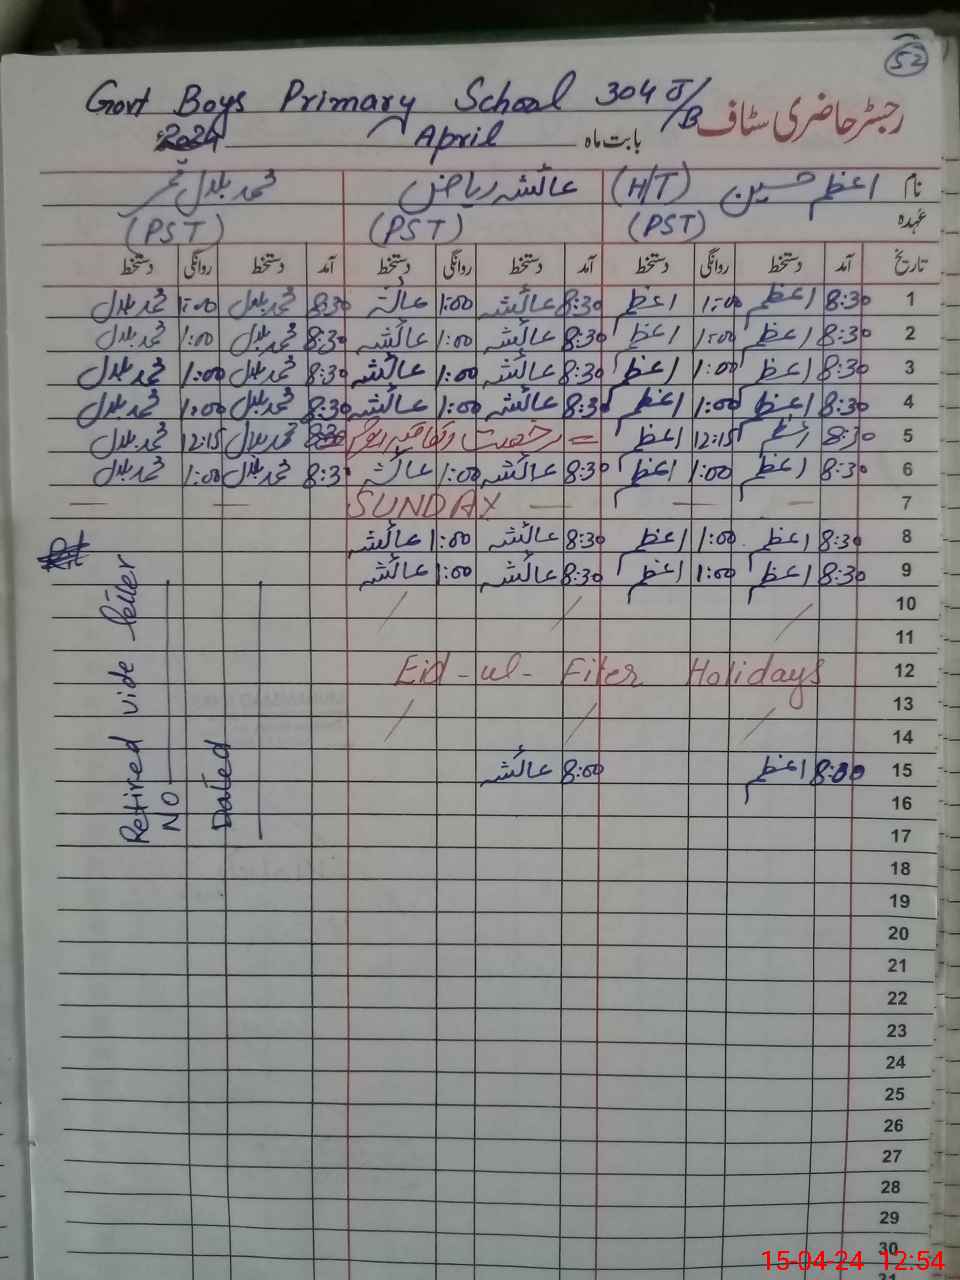 52
Govt Boys Primary School 304 J/B رجسٹر حاضری سٹاف
بابت ماہ April 2024ء
نام اعظم حسین (H/T) عائشہ ریاض محمد بلال
عہدہ (PST) (PST) (PST)
تاریخ آمد دستخط روانگی دستخط آمد دستخط روانگی دستخط آمد دستخط روانگی دستخط
1 8:30 اعظم 1:00 اعظم 8:30 عائشہ 1:00 عائشہ 8:30 محمد بلال 1:00 محمد بلال
2 8:30 اعظم 1:00 اعظم 8:30 عائشہ 1:00 عائشہ 8:30 محمد بلال 1:00 محمد بلال
3 8:30 اعظم 1:00 اعظم 8:30 عائشہ 1:00 عائشہ 8:30 محمد بلال 1:00 محمد بلال
4 8:30 اعظم 1:00 اعظم 8:30 عائشہ 1:00 عائشہ 8:30 محمد بلال 1:00 محمد بلال
5 8:30 اعظم 12:15 اعظم = رخصت اتفاقیہ 8:30 محمد بلال 12:15 محمد بلال
6 8:30 اعظم 1:00 اعظم 8:30 عائشہ 1:00 عائشہ 8:30 محمد بلال 1:00 محمد بلال
7 — — — SUNDAY — —
8 8:30 اعظم 1:00 اعظم 8:30 عائشہ 1:00 عائشہ
9 8:30 اعظم 1:00 اعظم 8:30 عائشہ 1:00 عائشہ
10
11
12 Eid-ul-Fiter Holidays
13
14
15 8:00 اعظم 8:00 عائشہ
16
17
18
19
20
21
22
23
24
25
26
27
28
29
30
31
Retired vide letter
NO
Dated
15-04-24 12:54